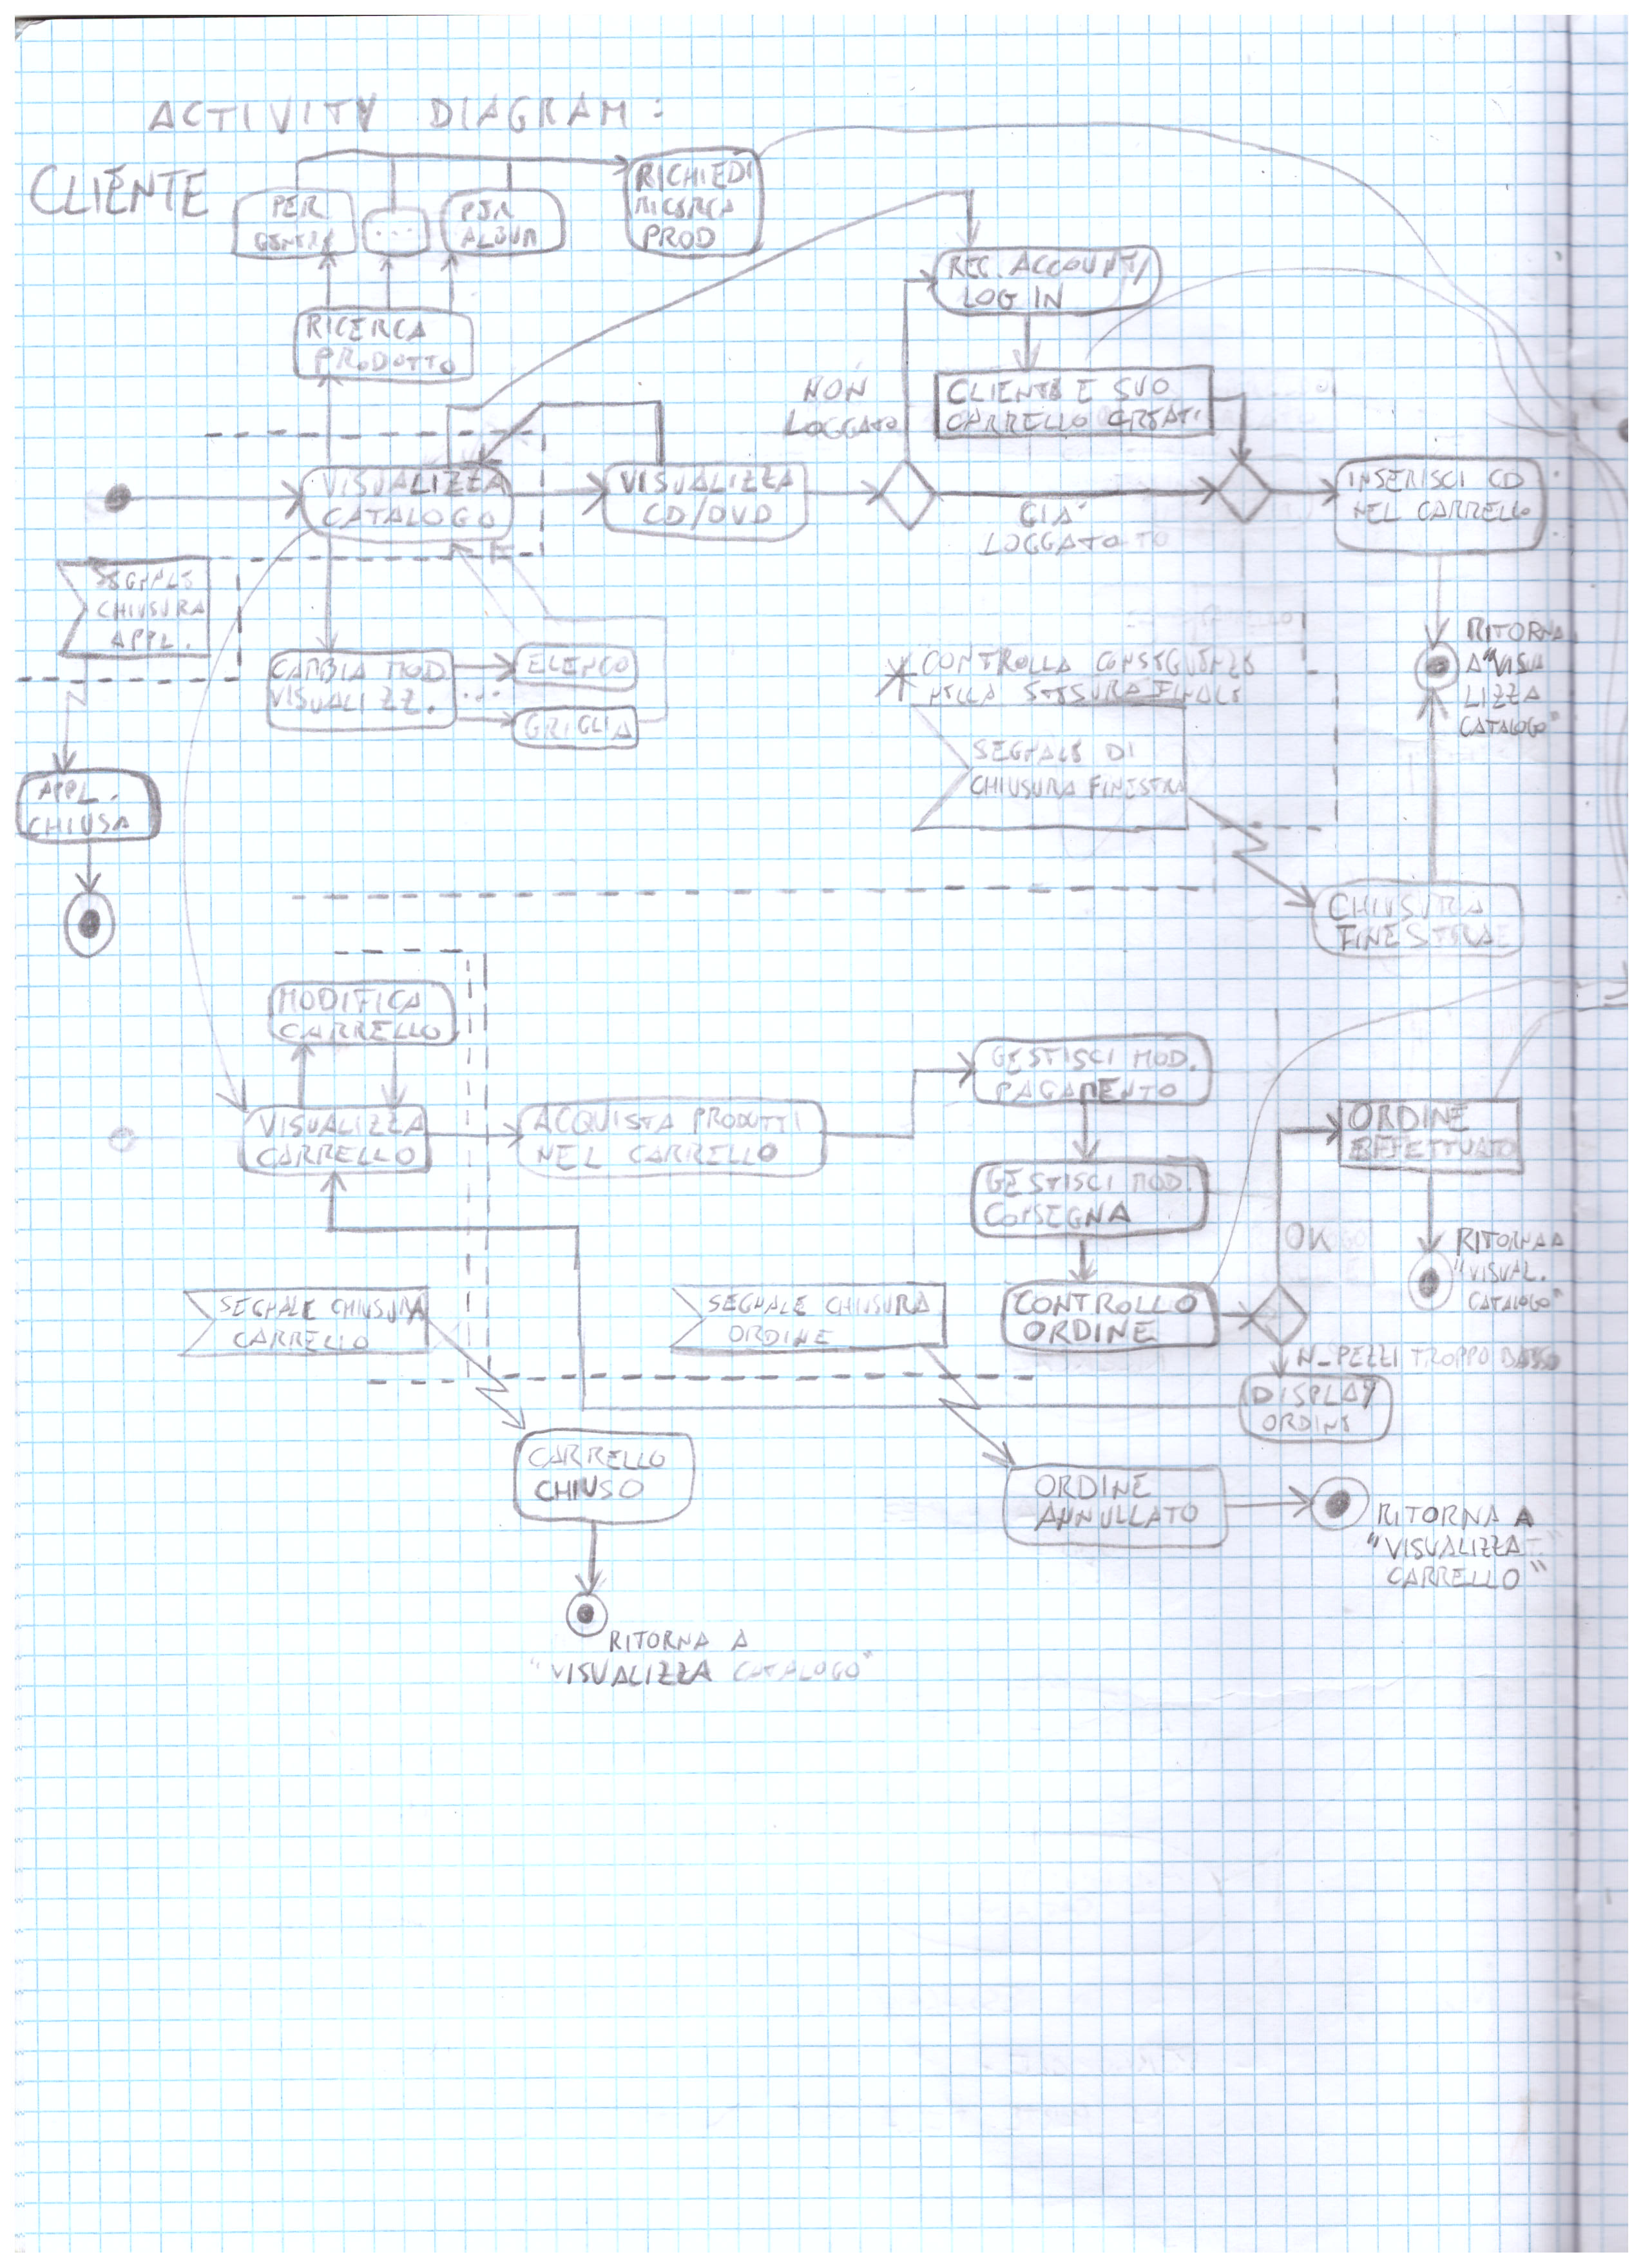 ACTIVITY DIAGRAM:
CLIENTE
PER
GENERE
...
PER
ALBUM
RICHIEDI
RICERCA
PROD
RICERCA
PRODOTTO
REG. ACCOUNT/
LOG IN
NON
LOGGATO
CLIENTE E SUO
CARRELLO CREATI
VISUALIZZA
CATALOGO
VISUALIZZA
CD/DVD
GIA'
LOGGATO
INSERISCI CD
NEL CARRELLO
SEGNALE
CHIUSURA
APPL.
CAMBIA MOD.
VISUALIZZ.
ELENCO
...
GRIGLIA
* CONTROLLA CONSEGUENZE
NELLA STESURA FINALE
RITORNA
A "VISUA
LIZZA
CATALOGO"
SEGNALE DI
CHIUSURA FINESTRA
APPL.
CHIUSA
CHIUSURA
FINESTRA
MODIFICA
CARRELLO
VISUALIZZA
CARRELLO
ACQUISTA PRODOTTI
NEL CARRELLO
GESTISCI MOD.
PAGAMENTO
GESTISCI MOD.
CONSEGNA
ORDINE
EFFETTUATO
OK
RITORNA A
"VISUAL.
CATALOGO"
SEGNALE CHIUSURA
CARRELLO
SEGNALE CHIUSURA
ORDINE
CONTROLLO
ORDINE
N_PEZZI TROPPO BASSO
DISPLAY
ORDINE
CARRELLO
CHIUSO
ORDINE
ANNULLATO
RITORNA A
"VISUALIZZA
CARRELLO"
RITORNA A
"VISUALIZZA CATALOGO"